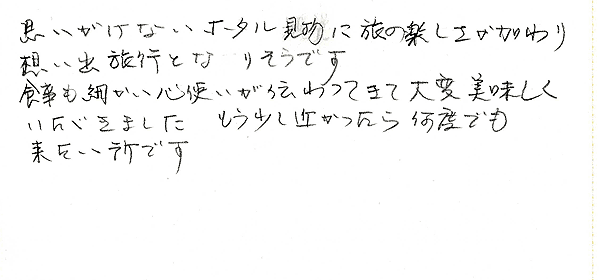 思いがけないホータル見物に旅の楽しさが加わり
想い出旅行となりそうです
食事も細かい心使いが伝わってきて大変美味しく
いただきました もう少し近かったら何度でも
来たい所です